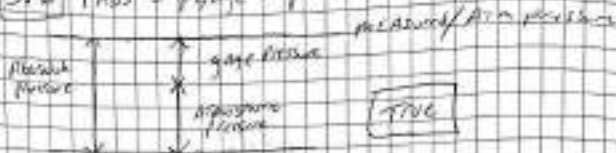 measured/Atm pressure
gage Pressure
Absolute
Pressure
Atmospheric
Pressure
TRUE